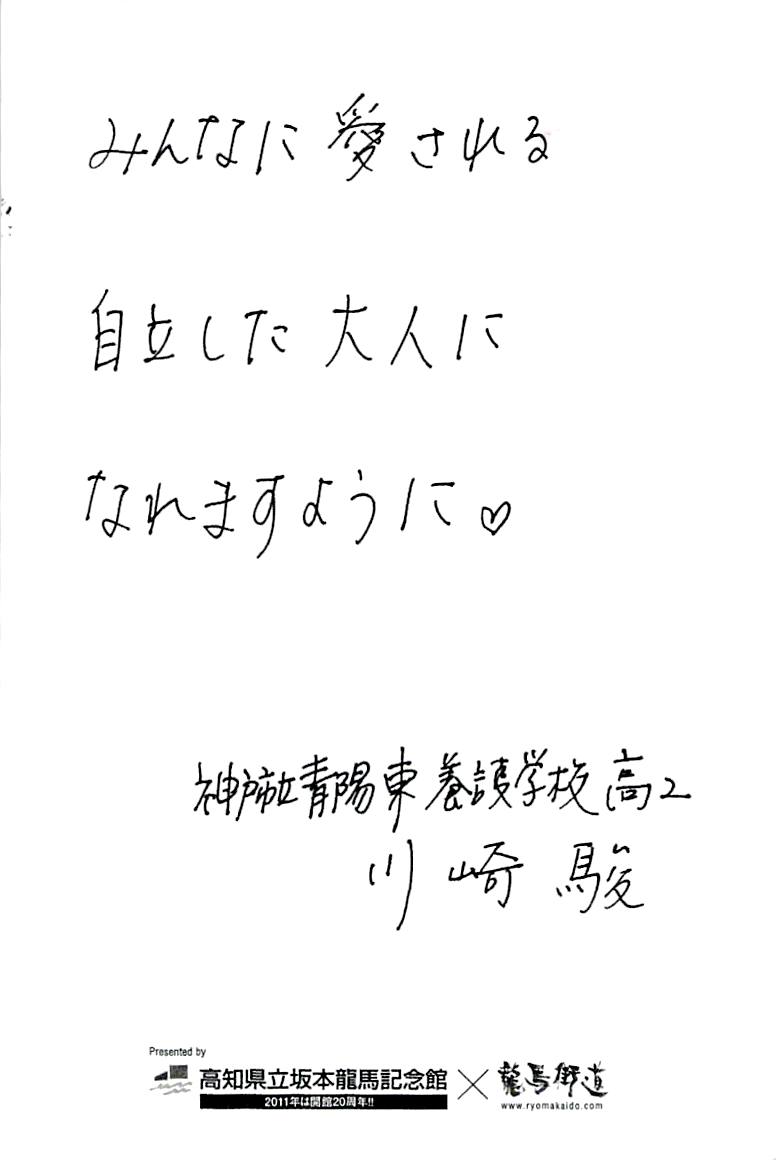 みんなに愛される
自立した大人に
なれますように♡
神戸市立青陽東養護学校 高2
川崎 駿
Presented by
高知県立坂本龍馬記念館 × 龍馬街道
2011年は開館20周年!!
www.ryomakaido.com